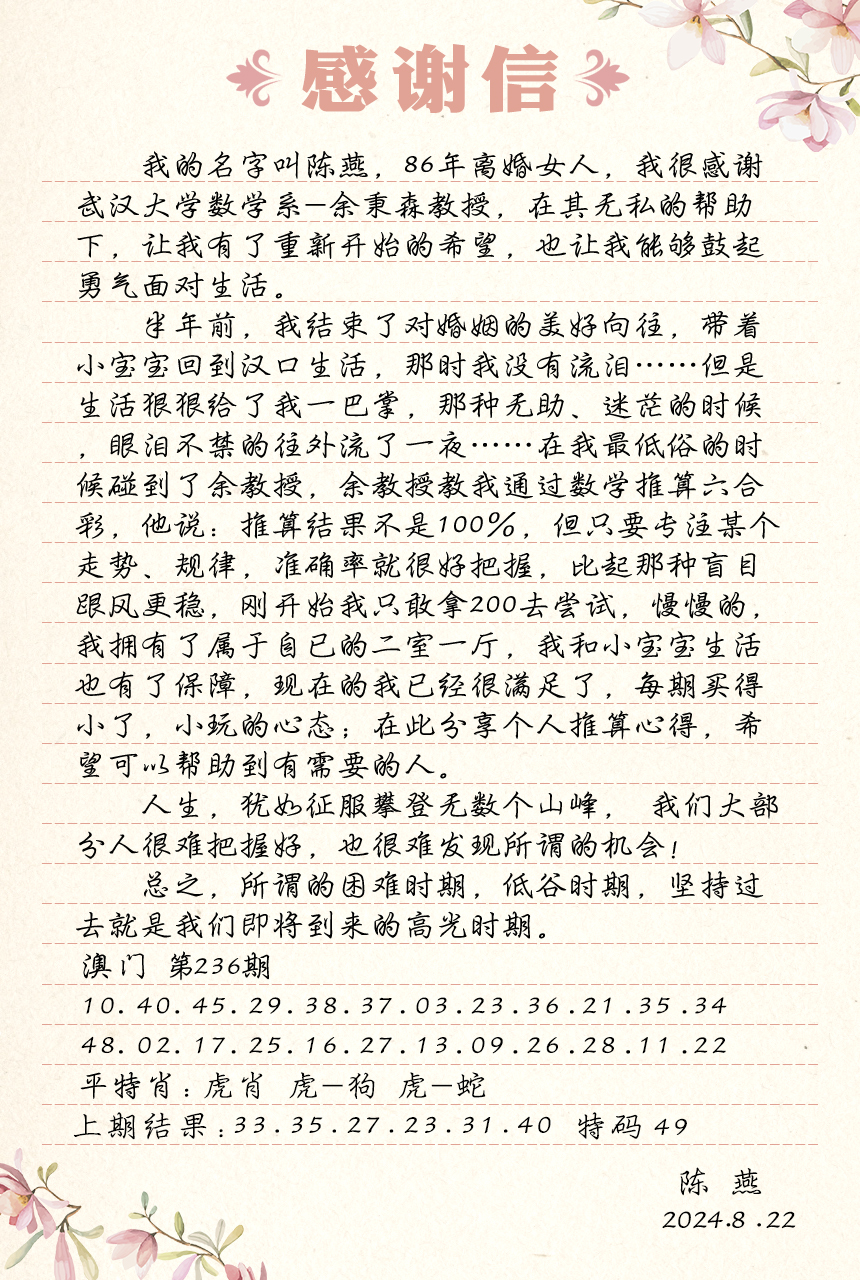 感谢信
我的名字叫陈燕，86年离婚女人，我很感谢
武汉大学数学系—余秉森教授，在其无私的帮助
下，让我有了重新开始的希望，也让我能够鼓起
勇气面对生活。
半年前，我结束了对婚姻的美好向往，带着
小宝宝回到汉口生活，那时我没有流泪……但是
生活狠狠给了我一巴掌，那种无助、迷茫的时候
，眼泪不禁的往外流了一夜……在我最低俗的时
候碰到了余教授，余教授教我通过数学推算六合
彩，他说：推算结果不是100%，但只要专注某个
走势、规律，准确率就很好把握，比起那种盲目
跟风更稳，刚开始我只敢拿200去尝试，慢慢的，
我拥有了属于自已的二室一厅，我和小宝宝生活
也有了保障，现在的我已经很满足了，每期买得
小了，小玩的心态；在此分享个人推算心得，希
望可以帮助到有需要的人。
人生，犹如征服攀登无数个山峰， 我们大部
分人很难把握好，也很难发现所谓的机会！
总之，所谓的困难时期，低谷时期，坚持过
去就是我们即将到来的高光时期。
澳门 第236期
10.40.45.29.38.37.03.23.36.21.35.34
48.02.17.25.16.27.13.09.26.28.11.22
平特肖：虎肖 虎—狗 虎—蛇
上期结果：33.35.27.23.31.40 特码 49
陈 燕
2024.8.22